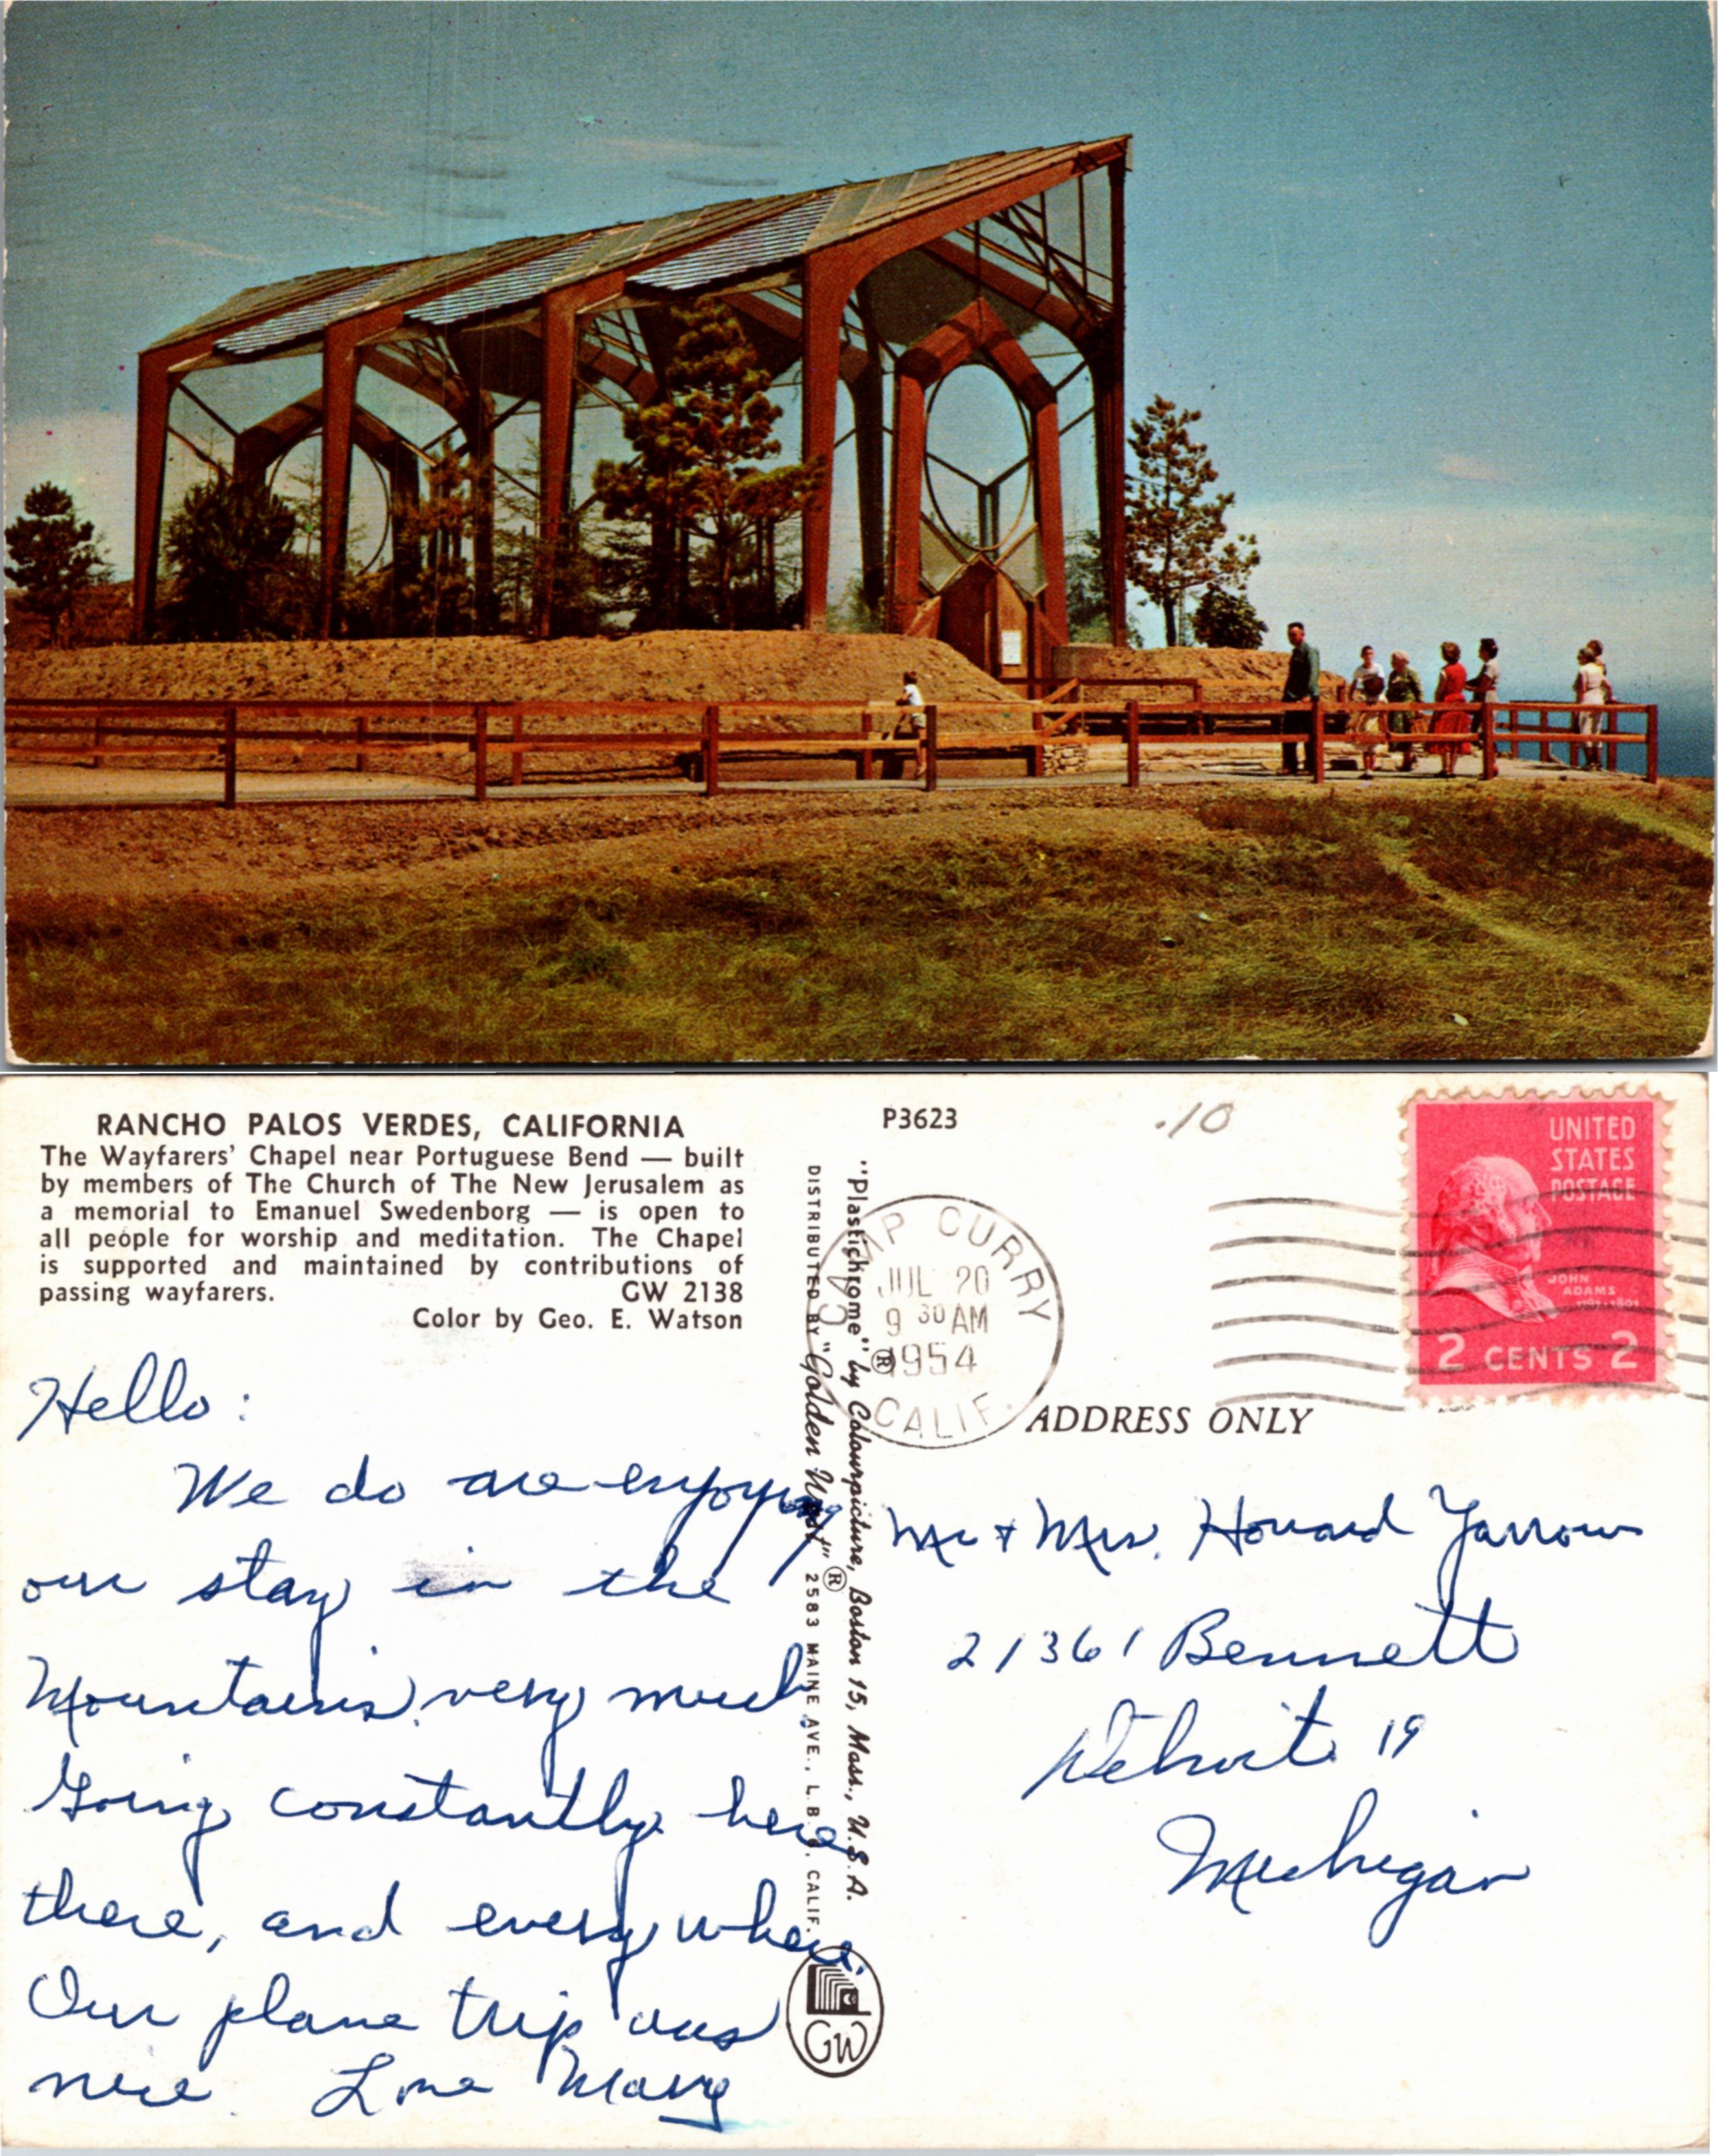 RANCHO PALOS VERDES, CALIFORNIA
The Wayfarers' Chapel near Portuguese Bend — built
by members of The Church of The New Jerusalem as
a memorial to Emanuel Swedenborg — is open to
all people for worship and meditation. The Chapel
is supported and maintained by contributions of
passing wayfarers. GW 2138
Color by Geo. E. Watson
Hello:
We do are enjoying
our stay in the
Mountains very much.
Going constantly here
there, and everywhere.
Our plane trip was
nice. Love Mary
DISTRIBUTED BY "Golden West" ® 2583 MAINE AVE., L. B. 6, CALIF.
"Plastichrome" ® by Colourpicture, Boston 15, Mass., U.S.A.
GW
P3623
.10
CAMP CURRY
JUL 20
9 30 AM
1954
CALIF.
UNITED
STATES
POSTAGE
JOHN
ADAMS
1797-1801
2 CENTS 2
ADDRESS ONLY
Mr & Mrs. Howard Yarrow
21361 Bennett
Detroit 19
Michigan